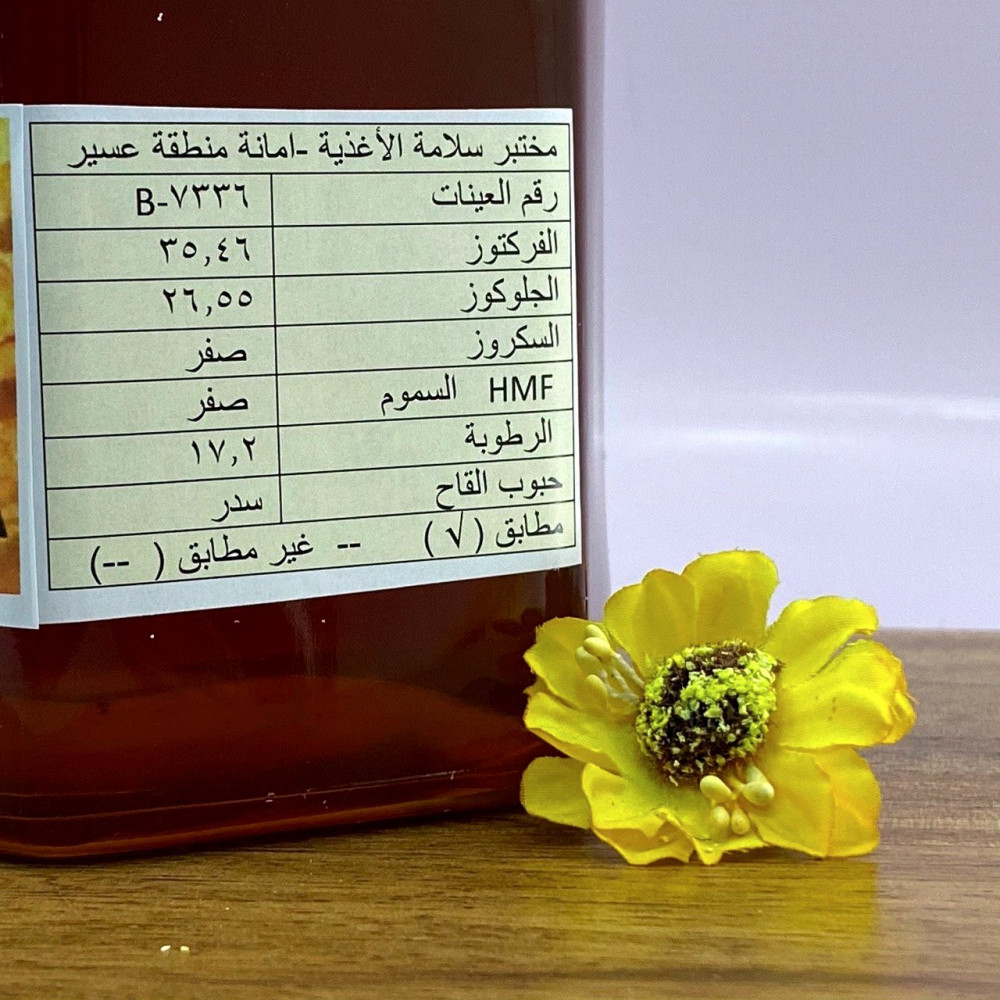 مختبر سلامة الأغذية -امانة منطقة عسير
رقم العينات B-٧٣٣٦
الفركتوز ٣٥,٤٦
الجلوكوز ٢٦,٥٥
السكروز صفر
HMF السموم صفر
الرطوبة ١٧,٢
حبوب القاح سدر
مطابق (√) -- غير مطابق ( --)